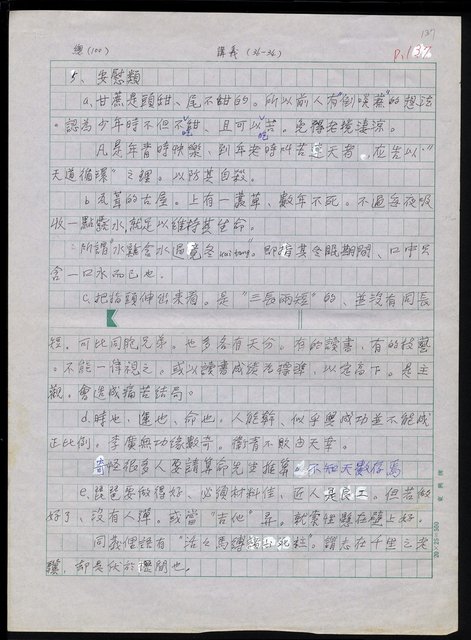 137
總(100) 講義(36-36) P.137
5、安慰類
a.甘蔗是頭甜、尾不甜的。所以前人有"倒喫蔗"的想法
。認為少年時不但不甜、且可以吃苦。免得老境淒涼。
凡是年青時快樂、到年老時叫苦連天者，應告以"
天道循環"之理。以防其自殺。
b.瓦蓋的古屋。上有一叢草、數年不死。不過每夜吸
收一點露水、就足以維持其生命。
所謂"水點含水過寒冬"。即指其冬眠期間、口中只
含一口水而已也。
c.把指頭伸出來看。是"三長兩短"的、並沒有同長
短。可比同胞兄弟。也多各有天分。有的讀書、有的技藝
。不能一律視之。或以讀書成績為標準、以定高下。是主
觀。會造成痛苦結局。
d.時也、運也、命也。人能幹、似乎與成功並不能成
正比例。李廣無功緣數奇。衛青不敗由天幸。
奇怪很多人要請算命先生推算。不知天數存焉
e.琵琶要做得好、必須材料佳、匠人是良工。但若做
好了、沒有人彈。或當"吉他"弄。就索性懸在壁上好。
同義俚語有"活活馬縛在死柱"。謂志在千里之老
驥、却是伏於櫪間也。
20×25=500